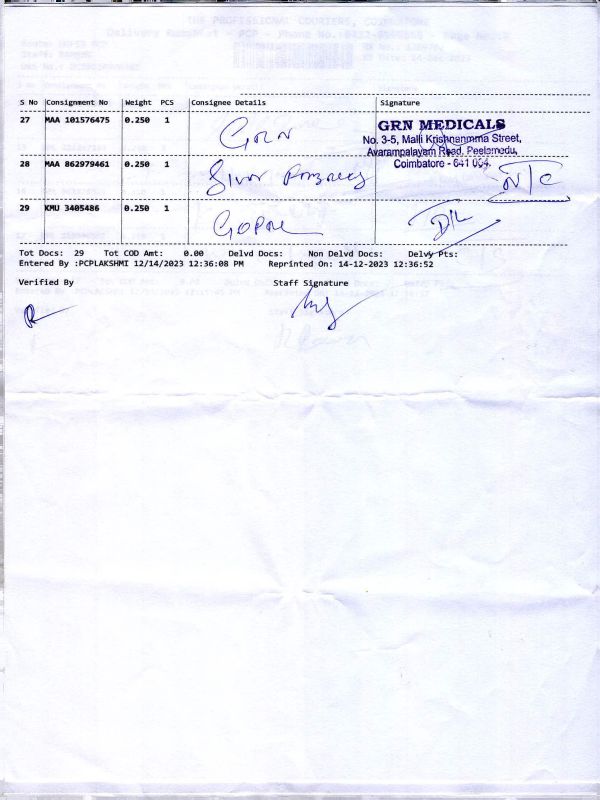 S No Consignment No Weight PCS Consignee Details Signature
27 MAA 101576475 0.250 1 GRN
GRN MEDICALS
No. 3-5, Malli Krishnanmma Street,
Avarampalayam Road, Peelamedu,
Coimbatore - 641 004.
28 MAA 862979461 0.250 1 N/C
29 KMU 3405486 0.250 1 GOPAL D/L
Tot Docs: 29 Tot COD Amt: 0.00 Delvd Docs: Non Delvd Docs: Delvy Pts:
Entered By :PCPLAKSHMI 12/14/2023 12:36:08 PM Reprinted On: 14-12-2023 12:36:52
Verified By Staff Signature